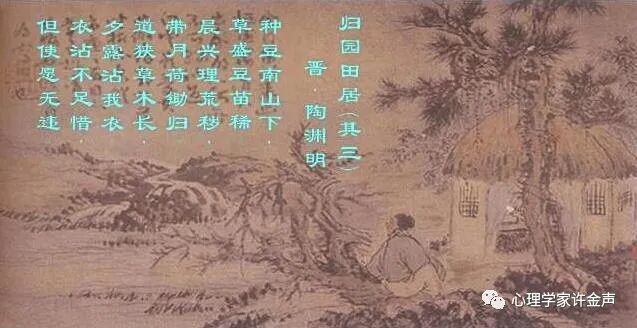 归园田居(其三)
晋·陶渊明
种豆南山下，
草盛豆苗稀。
晨兴理荒秽，
带月荷锄归。
道狭草木长，
夕露沾我衣。
衣沾不足惜，
但使愿无违
心理学家许金声